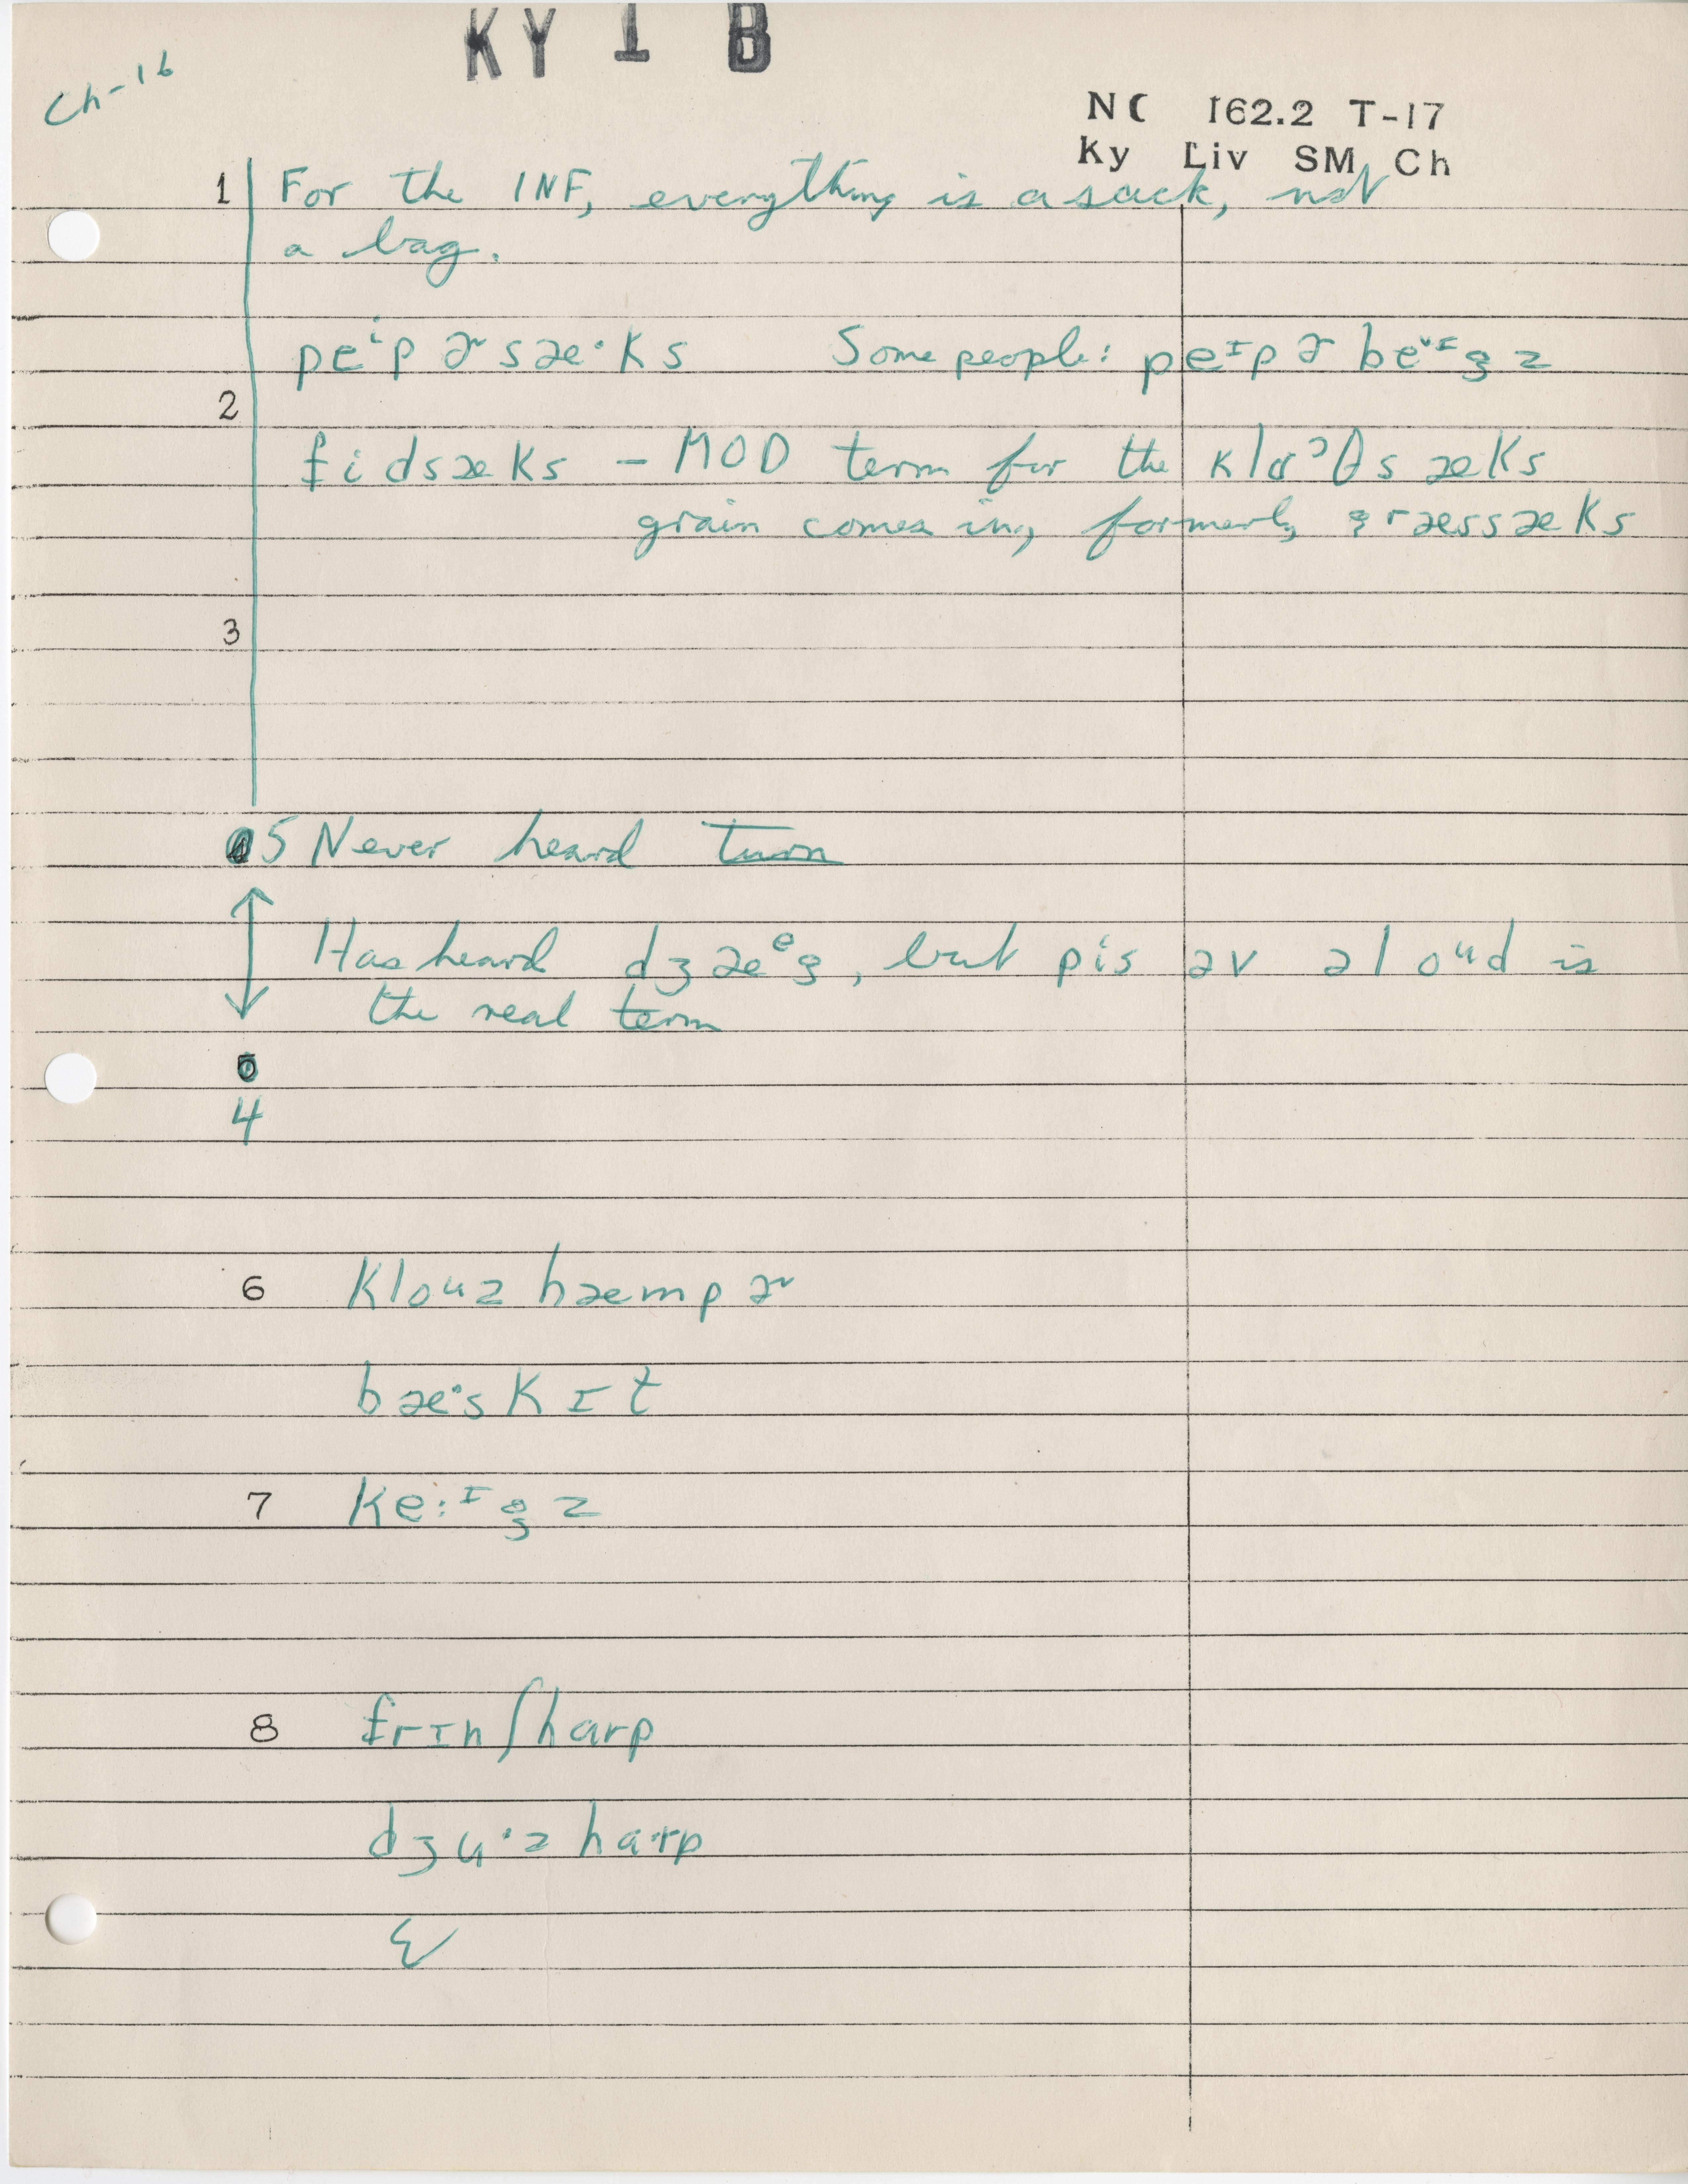 Ch-16
KY 1 B
NC 162.2 T-17
Ky Liv SM Ch
1 For the INF, everything is a sack, not
a bag.
peⁱpɚsæ·ks Some people: peᶦpɚ be˅ᶦgz
2
fidsæks – MOD term for the klɑᵓθsæks
grain comes in, formerly græssæks
3
5 Never heard turn
Has heard dʒæᵉg, but pis əv əloᵘd is
the real term
5
4
6 klouzhæmpɚ
bæ·skɪt
7 ke:ᶦgz
8 frɪnʃharp
dʒu·zharp